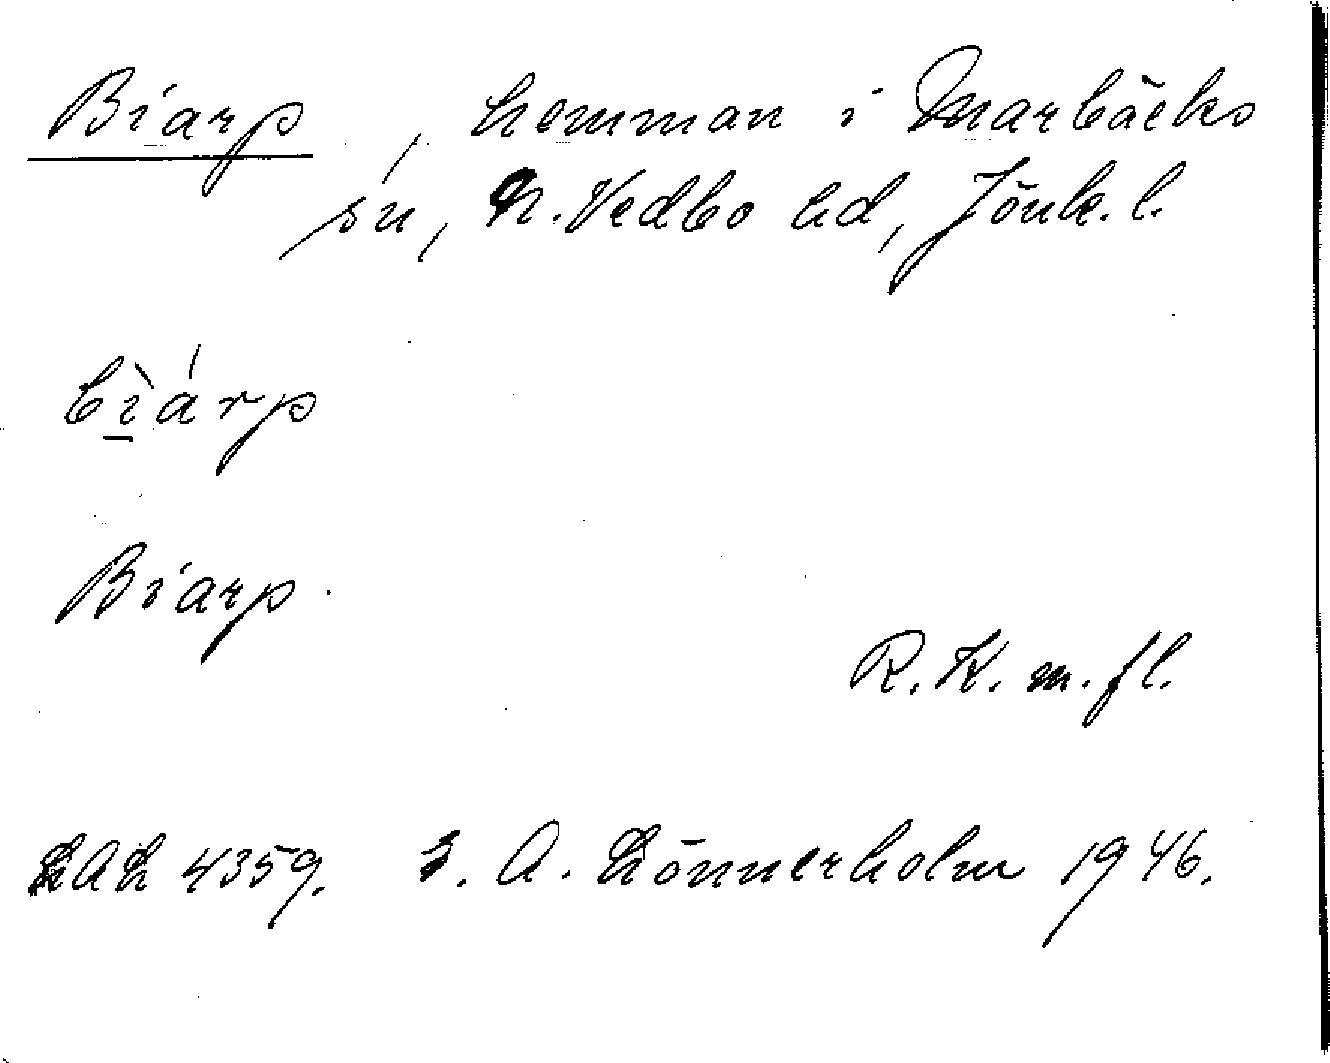 Biarp, hemman i Marbäcks
sn, N. Vedbo hd, Jönk. l.
bìárp
Biarp.
R. K. m. fl.
LAL 4359. A. Lönnerholm 1946.